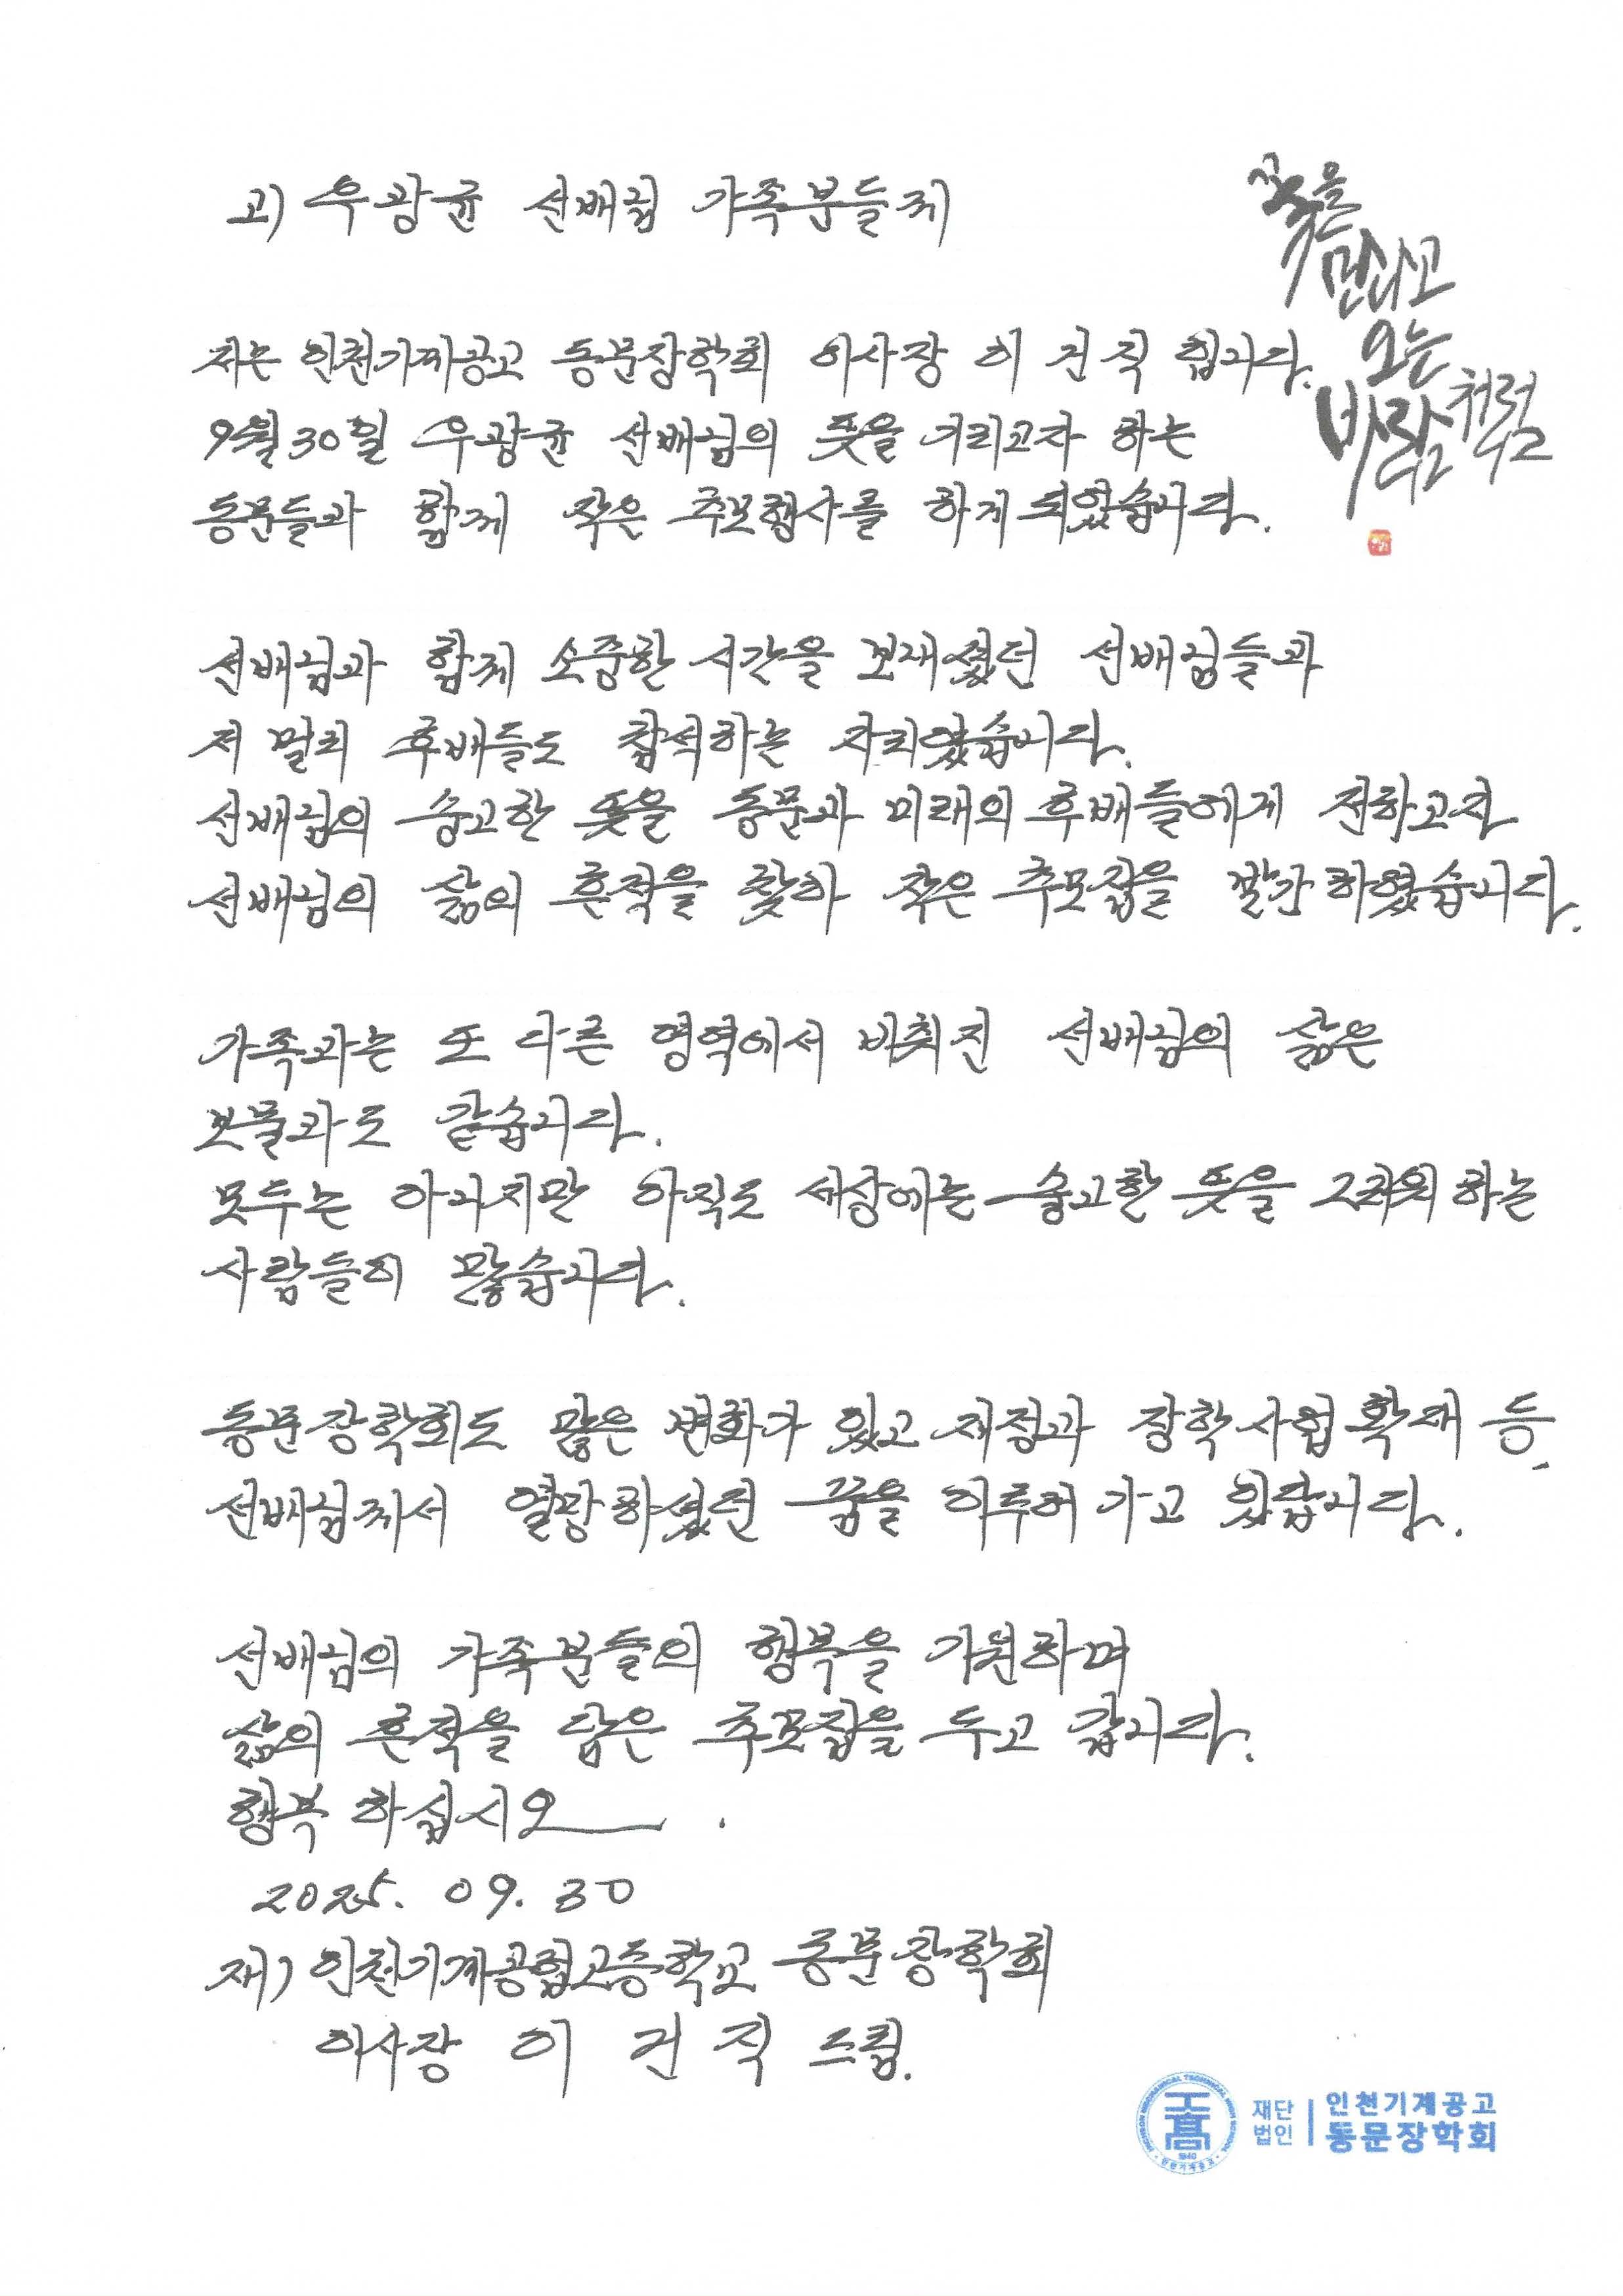 고) 우광균 선배님 가족분들께
꽃을
만나고
오는
바람처럼
저는 인천기계공고 동문장학회 이사장 이 건 직 입니다.
9월 30일 우광균 선배님의 뜻을 기리고자 하는
동문들과 함께 작은 추모행사를 하게 되었습니다.
선배님과 함께 소중한 시간을 보내셨던 선배님들과
저 멀리 후배들도 참석하는 자리였습니다.
선배님의 숭고한 뜻을 동문과 미래의 후배들에게 전하고자
선배님의 삶의 흔적을 찾아 작은 추모집을 발간하였습니다.
가족과는 또 다른 영역에서 비춰진 선배님의 삶은
보물과도 같습니다.
모두는 아니지만 아직도 세상에는 숭고한 뜻을 그리워하는
사람들이 많습니다.
동문장학회도 많은 변화가 있고 재정과 장학사업확대 등,
선배님께서 열망하셨던 꿈을 이루어 가고 있답니다.
선배님의 가족분들의 행복을 기원하며
삶의 흔적을 담은 추모집을 두고 갑니다.
행복 하십시오 .
2025. 09. 30
재) 인천기계공업고등학교 동문장학회
이사장 이 건 직 드림.
INCHEON MECHANICAL TECHNICAL HIGH SCHOOL
工高
1940
인천기계공고
재단법인 | 인천기계공고
동문장학회